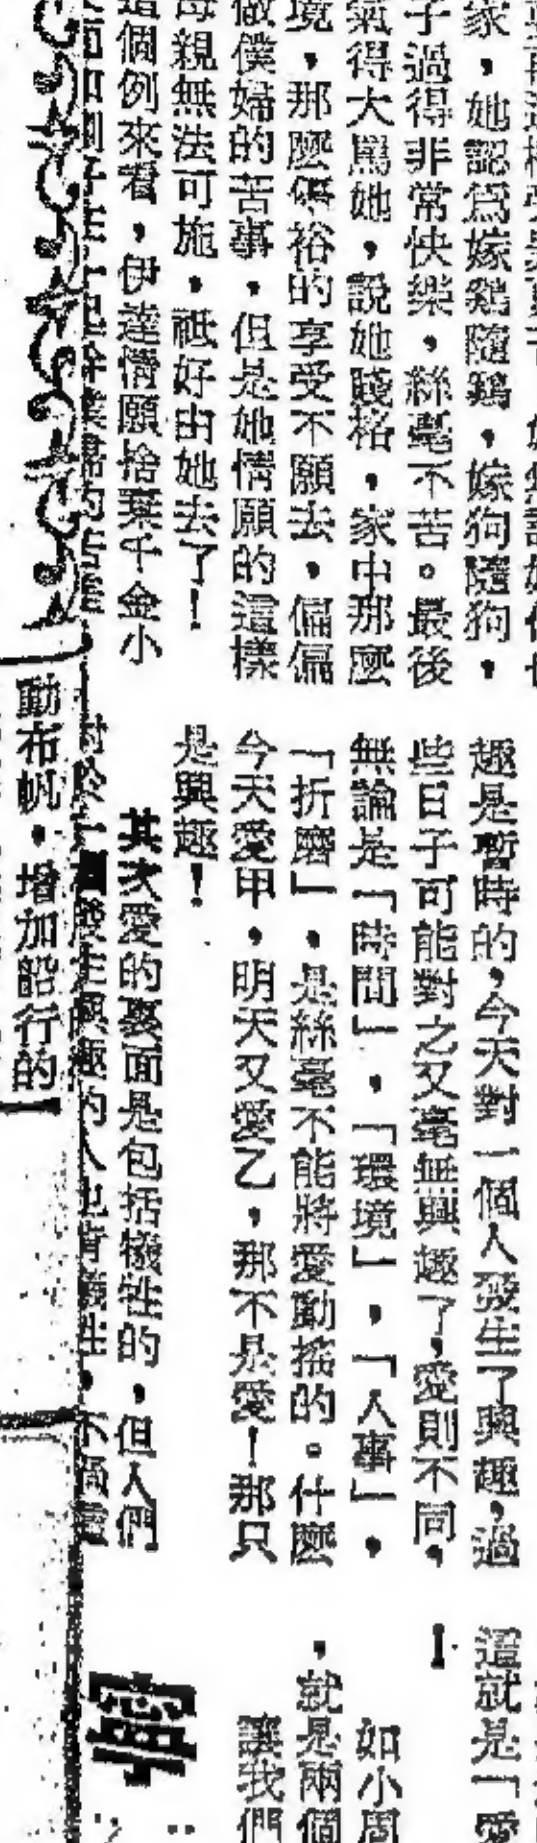 家，她認爲嫁鷄隨鷄，嫁狗隨狗，
子過得非常快樂，絲毫不苦。最後
氣得大罵她，說她賤格，家中那麼
境，那麼優裕的享受不願去，偏偏
做僕婦的苦事，但是她情願的這樣
母親無法可施，祗好由她去了！
這個例來看，伊達情願捨棄千金小
趣是暫時的，今天對一個人發生了興趣，過
些日子可能對之又毫無興趣了，愛則不同，
無論是「時間」，「環境」，「人事」，
「折磨」，是絲毫不能將愛動搖的。什麼
今天愛甲，明天又愛乙，那不是愛！那只
是興趣！
其次愛的裏面是包括犧牲的，但人們
對於一個發生興趣的人也肯犧牲，不過
動布帆，增加船行的
這就是「愛
！
如小周
，就是兩個
讓我們